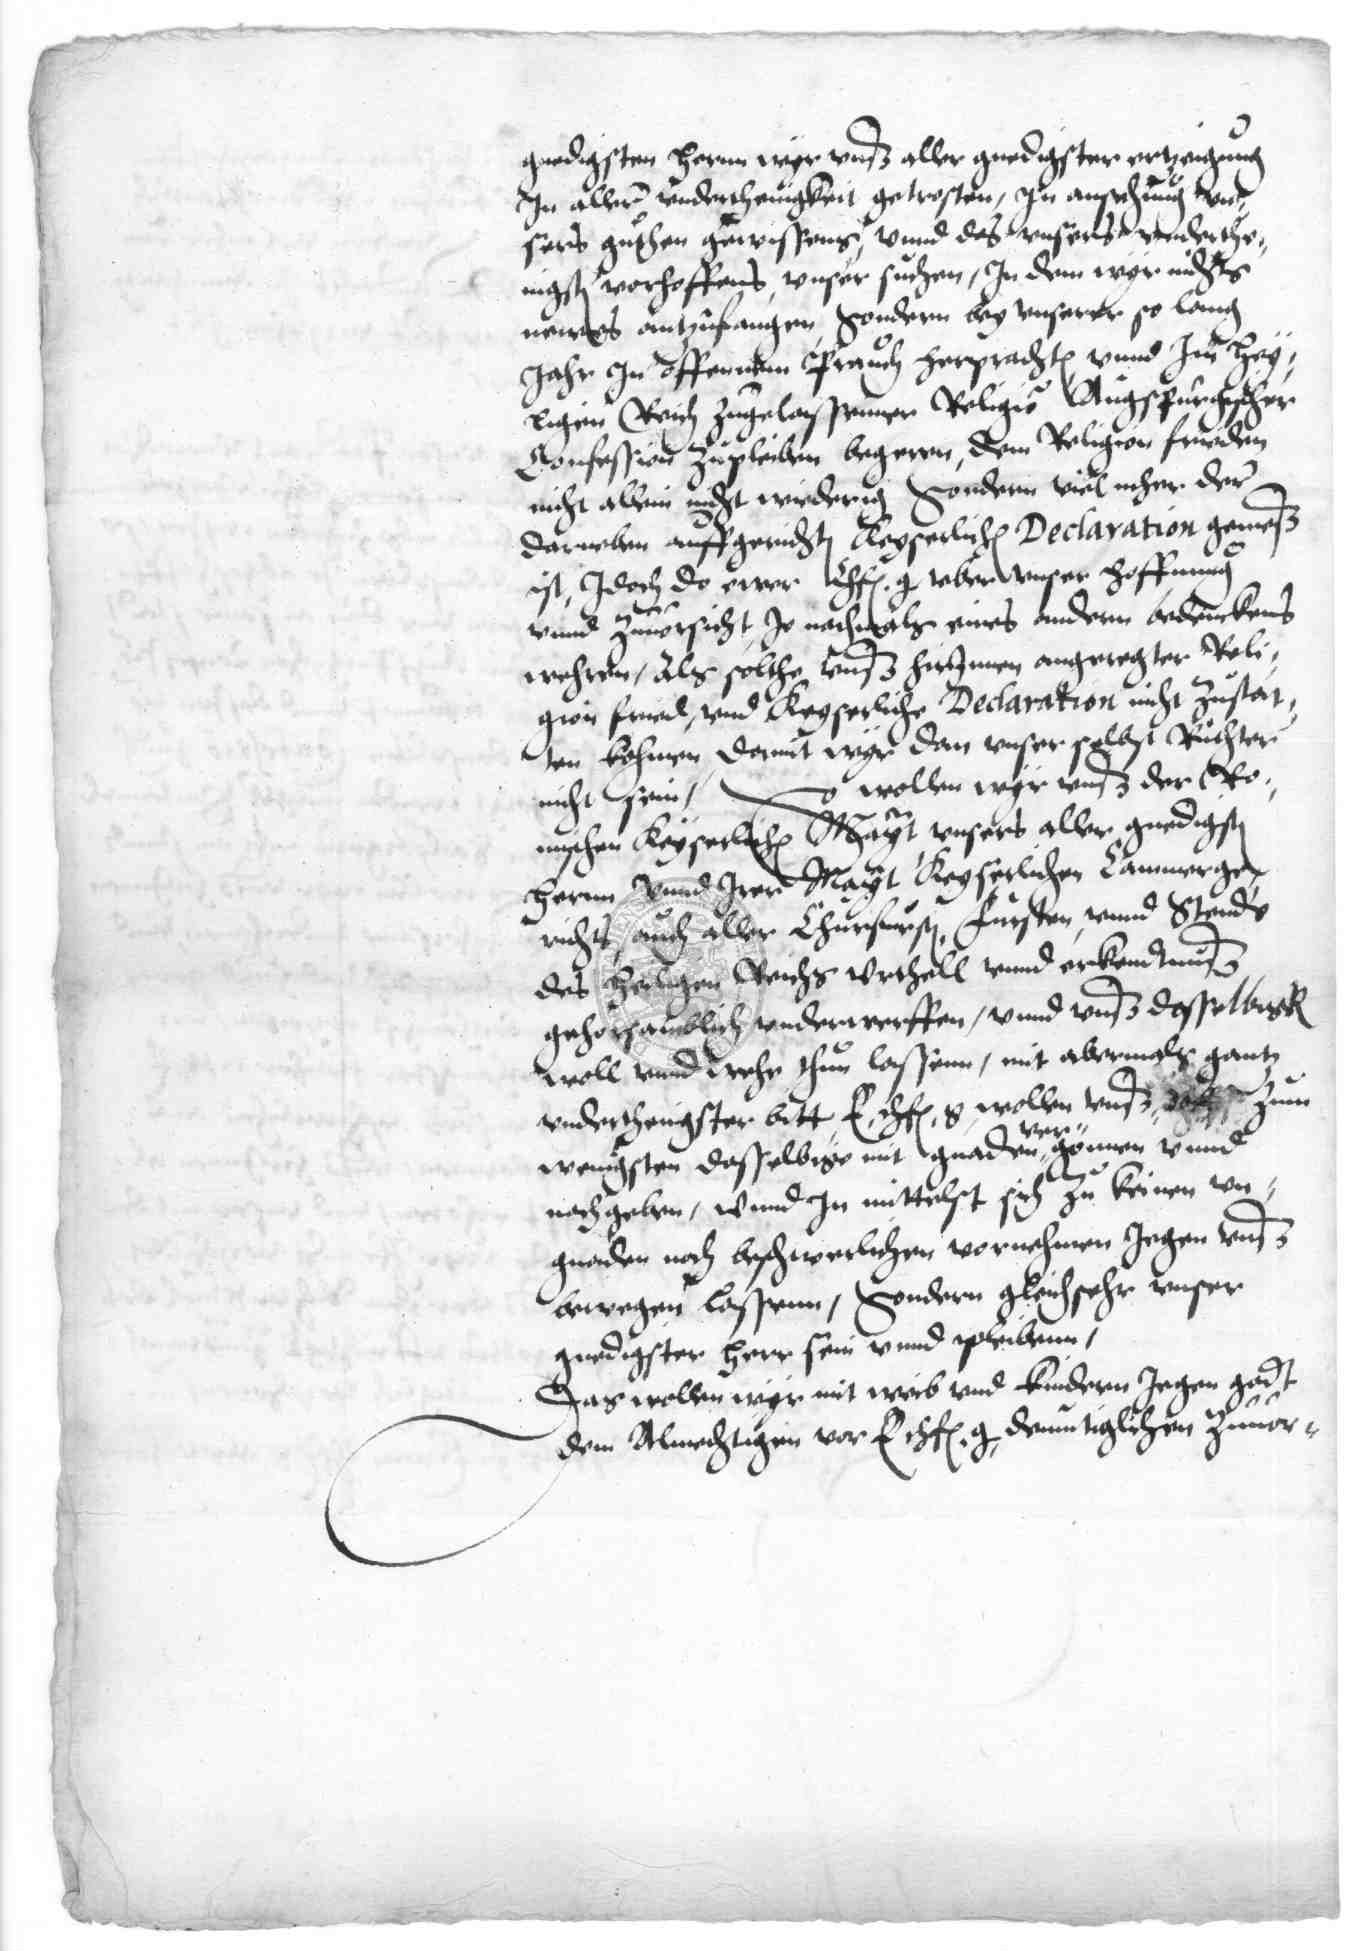 gnedigsten Hernn wyr vnß aller gnedigster ertzeigung
In aller vnderthenigkeit getrosten, In ansehung vn¬
sers guthen gewissens, vnnd des vnsers vnderthe¬
nigst vorhoffens, vnser suchen, In dem wyr nichts
newes antzufangen, Sondern bey vnserer so lang
Jahr In offennem Prauch herprachten vnnd Im Hey¬
ligen Reich zugelassenner Religion Augspurgischer
Confession zupleiben begeren, dem Religion frieden
nicht allein nicht wiederig Sondern viel meher der
darneben auffgerichten Keyserlichen Declaration gemeß
ist, Idoch do ewer Chf. g. vber vnser hoffnung
vnnd zuuorsicht, Je nachmals eines andern bedenckens
wehren, Als solthe vnß hirInnen angeregter Reli¬
gion fried, vnd Keyserliche Declaration nicht zustat¬
ten kohmen, Damit wyr dan vnser selbst Richter
nicht sein, So wollen wyr vnß der Ro¬
mischen Keyserlichen Mayt vnsers aller gnedigsten
Hernn vnnd Irer Mayt Keyserlichen Cammerge¬
richts, auch aller Churfursten, Fursten, vnnd Stende
des Heiligen Reichs Vrtheil vnnd erkendtnuß
gehorsamblich vnderwerffen, vnnd vnß dasselbige
woll vnnd wehe thun lassenn, mit abermals gantz
vnderthenigster bitt E. chf. g. wollen vnß zum
wenigsten dasselbige mit gnaden vergonnen vnnd
nachgeben, vnnd In mittelst sich zu keinen vn¬
gnaden noch beschwerlichen vornehmen Jegen vnß
bewegen lassenn, Sondern gleichsehr vnser
gnedigster Herr sein vnnd pleibenn,
Das wollen wyr mit weib vnd kindern Jegen godt
dem Almechtigen vor E chf. g. demutiglichen zuuor¬